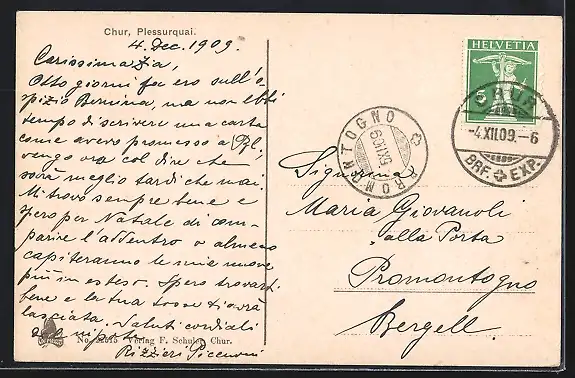 Chur, Plessurquai.
4. Dec. 1909.
Carissima zia,
Otto giorni fa ero sull'O-
spizio Bernina, ma non ebbi
tempo di scrivere una carta
come avevo promesso a
vengo ora col dire che
sarà meglio tardi che mai.
Mi trovo sempre bene e
spero per Natale di com-
parire l'addentro o almeno
capiteranno le mie nuove
più in esteso. Spero trovarti
bene e la tua
lasciata. Saluti cordiali
dal nipote
No. 22615 Verlag F. Schuler, Chur.
Rizzieri Picenoni
HELVETIA
5
CHUR 7
-4.XII.09.-6
BRF. EXP.
PROMONTOGNO
XII.09
Signorina
Maria Giovanoli
alla Porta
Promontogno
Bergell.